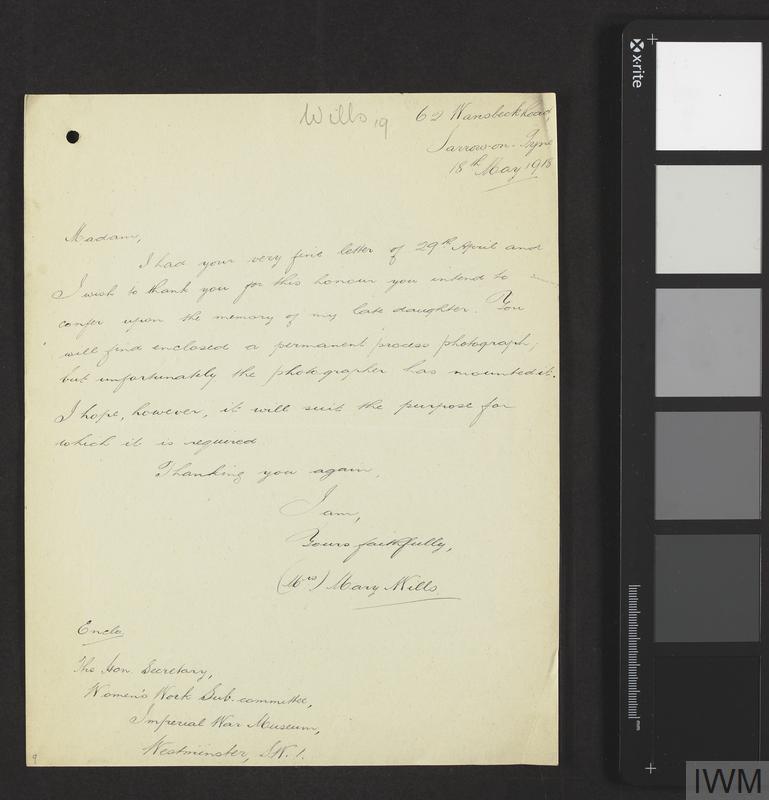 Wills 19
62 Wansbeck Road,
Jarrow-on-Tyne
18th May 1918
Madam,
I had your very fine letter of 29th April and
I wish to thank you for this honour you intend to
confer upon the memory of my late daughter. You
will find enclosed a permanent process photograph;
but unfortunately the photographer has mounted it.
I hope, however, it will suit the purpose for
which it is required.
Thanking you again,
I am,
Yours faithfully,
(Mrs) Mary Wills.
Enclo
The Hon. Secretary,
Women's Work Sub-committee,
Imperial War Museum,
Westminster, S.W.1.
9
x-rite
mm
IWM